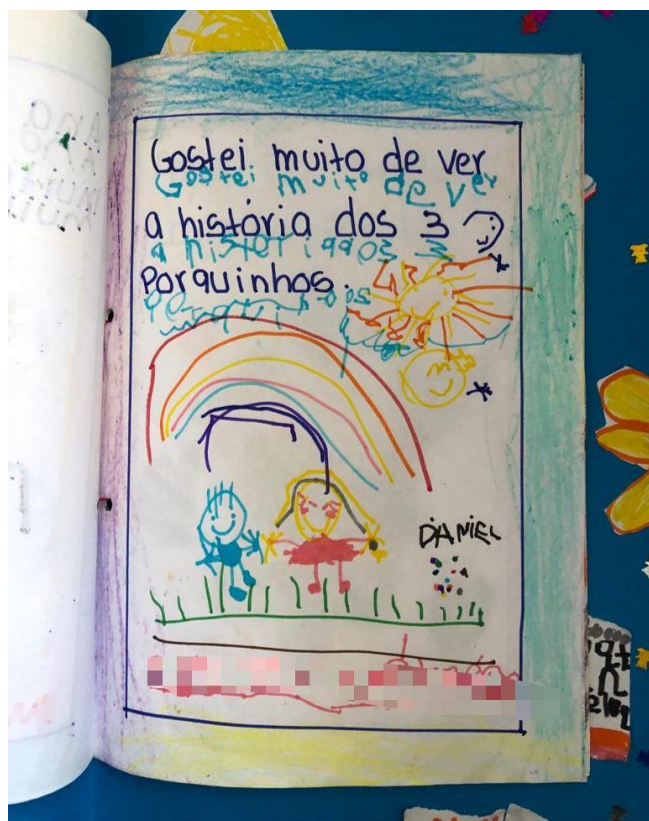 Gostei muito de ver
Gostei muito de ver
a história dos 3
a história dos 3
Porquinhos.
DANIEL